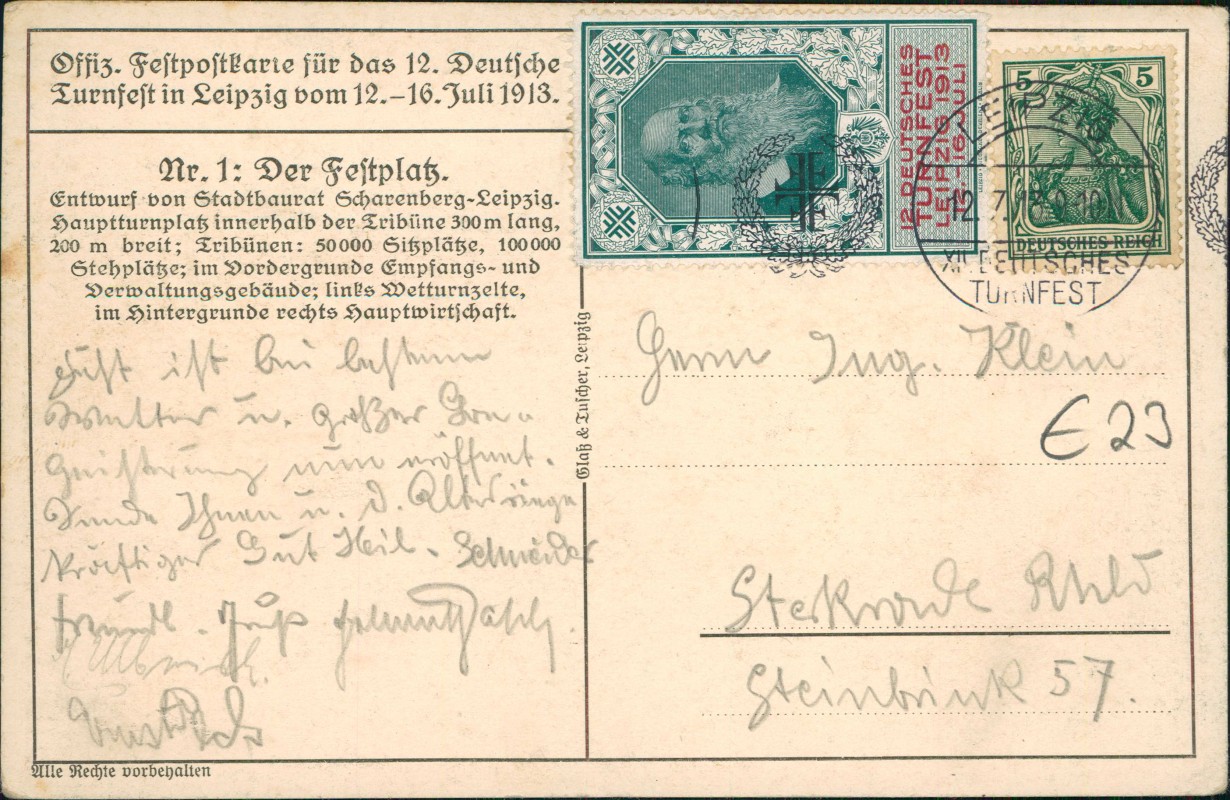 Offiz. Festpostkarte für das 12. Deutsche
Turnfest in Leipzig vom 12.–16. Juli 1913.
Nr. 1: Der Festplatz.
Entwurf von Stadtbaurat Scharenberg-Leipzig.
Hauptturnplatz innerhalb der Tribüne 300 m lang,
200 m breit; Tribünen: 50000 Sitzplätze, 100000
Stehplätze; im Vordergrunde Empfangs- und
Verwaltungsgebäude; links Wetturnzelte,
im Hintergrunde rechts Hauptwirtschaft.
ist bei bestem
Wetter u. großer Be-
geisterung nun eröffnet.
Sende Ihnen u. d. Altersriege
kräftiges Gut Heil. Schneider
freundl. Gruß
Alle Rechte vorbehalten
Glaß & Tuscher, Leipzig
12. DEUTSCHES
TURNFEST
LEIPZIG 1913
12-16. JULI
5 5
DEUTSCHES REICH
LEIPZIG
12.7.
XII. DEUTSCHES
TURNFEST
Herrn Ing. Klein
€ 23
Sterkrade Rhld
Steinbrink 57.